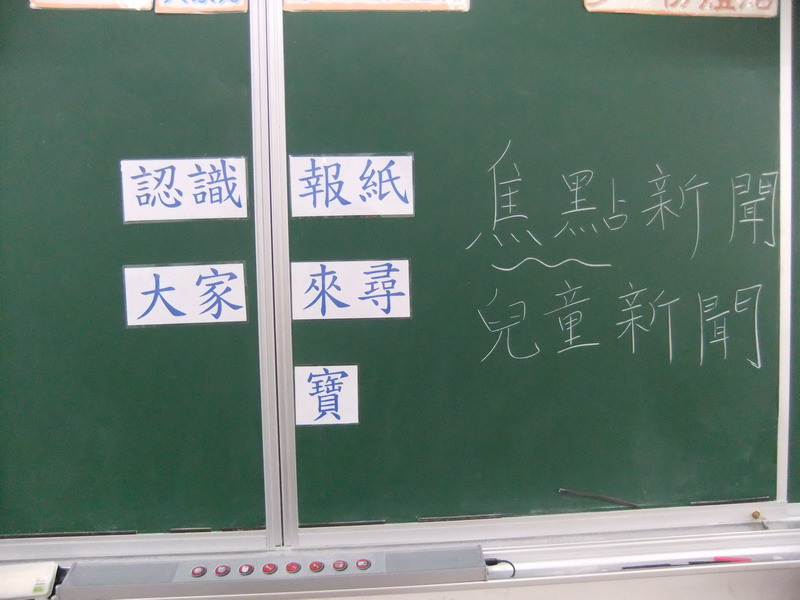 認識報紙
大家來尋
寶
焦點新聞
兒童新聞